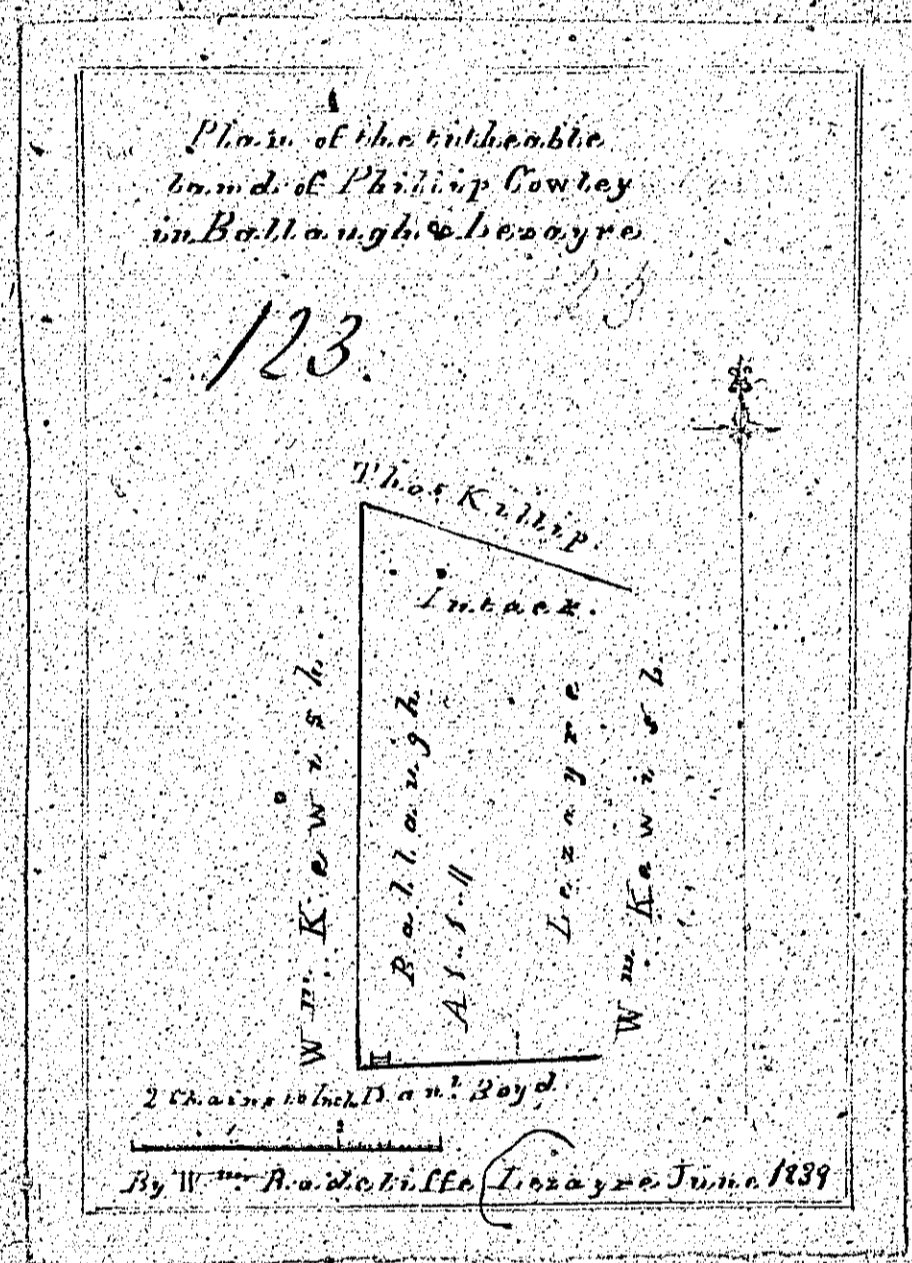 Plan of the titheable
land of Phillip Cowley
in Ballaugh & Lezayre
123.
Thos Killip.
Intack.
Wm Kewish.
Ballaugh
A 1..1..11
Lezayre
Wm Kewish.
2 Chains to Inch
Danl Boyd.
By Wm Radcliffe Lezayre June 1839